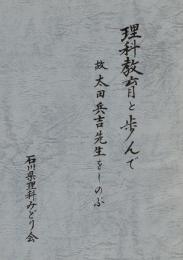 理科教育と歩んで
故 太田兵吉先生をしのぶ
石川県理科みどり会